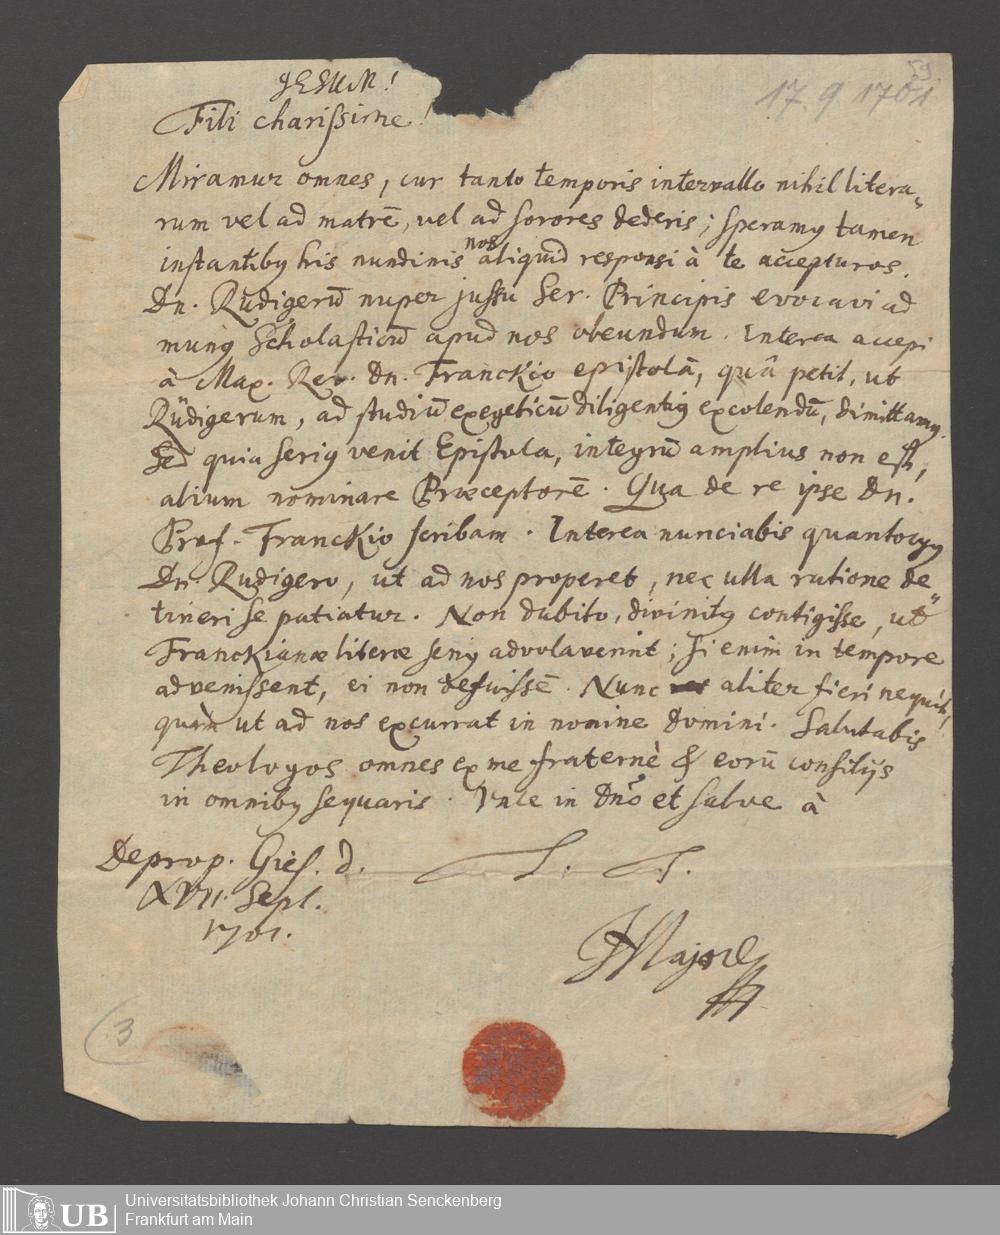 JESUM!
59.
17. 9 1701
Fili charissime!
Miramur omnes, cur tanto temporis intervallo nihil litera„
rum vel ad matrē, vel ad sorores dederis; speramꝰ tamen
instantibꝰ his nundinis nos aliquid responsi à te accepturos.
Dn. Rüdigerū nuper jussu Ser. Principis evocavi ad
munꝰ Scholasticū apud nos obeundum. Interea accepi
à Max. Rev. Dn. Franckio epistolā, quâ petit, ut
Rüdigerum, ad studiū exegeticū diligentiꝰ excolendū, dimittamꝰ.
Sed quia seriꝰ venit Epistola, integrū amplius non est,
alium nominare Præceptorē. Qua de re ipse Dn.
Prof. Franckio scribam. Interea nunciabis quantocyꝰ
Dn. Rudigero, ut ad nos properet, nec ulla ratione de„
tineri se patiatur. Non dubito, divinitꝰ contigisse, ut
Franckianæ literæ seriꝰ advolaverint; si enim in tempore
advenissent, ei non defuissē. Nunc aliter fieri nequit,
quàm ut ad nos excurrat in nomine Domini. Salutabis
Theologos omnes ex me fraternè & eorū consilijs
in omnibꝰ sequaris. Vale in Dno et salve à
Deprop. Gies. d.
XVII. Sept.
1701.
T. T.
JHMajore
3
UB
Universitätsbibliothek Johann Christian Senckenberg
Frankfurt am Main